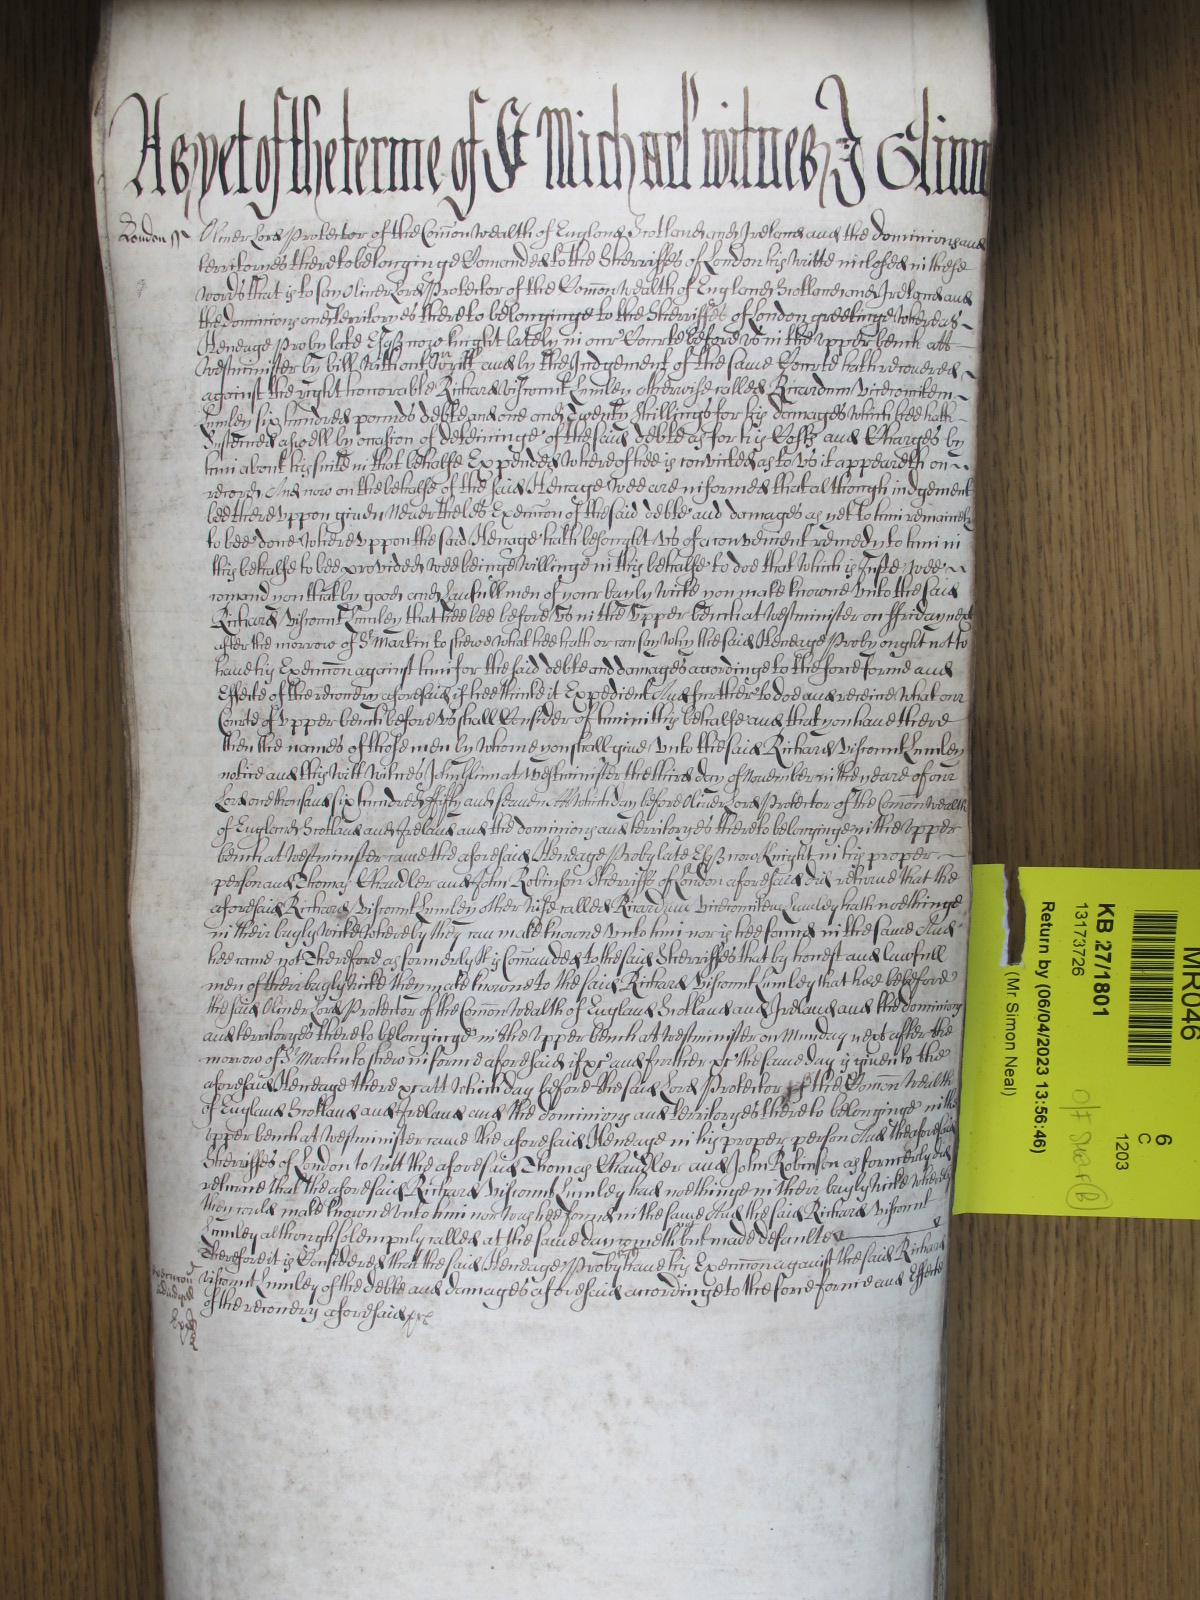 As yet of the terme of St Michaell witnes J Glinn
London ss Oliver Lord Protector of the Comon Wealth of England Scotland and Ireland and the dominions and
territoryes thereto belonginge Comanded to the Sherriffes of London his Writte inclosed in these
words that is to say Oliver Lord Protector of the Comon Wealth of England Scotland and Ireland and
the dominions and territoryes thereto belonginge to the Sherriffes of London greetinge whereas
Heneage Proby late Esqr now knight lately in our Courte before vs in the vpper bench att
Westminister by bill without writt and by the Iudgement of the same Courte hath recovered
against the right honorable Richard Viscount Lumley otherwise called Ricardum Vicecomitem
Lumley six hundred pounds debte and one and Twenty shillings for his damages which hee hath
Susteined aswell by occasion of deteininge of the said debte as for his Costs and Charges by
him about his suite in that behalfe Expended whereof hee is convicted as to vs it appeareth on
record And now on the behalfe of the said Henage wee are informed that although iudgement
bee therevppon given Neverthelesse Execucon of the said debte and damages as yet to him remaineth
to bee done wherevppon the said Henage hath besought vs of a convenient remedy to him in
this behalfe to bee provided wee beinge willinge in this behalfe to doe that which is Iuste wee
comand you that by good and Laufull men of your bayly wicke you make knowne vnto the said
Richard Viscount Lumley that hee bee before vs in the vpper bench at Westminister on ffriday next
after the morrow of St Martin to shewe what hee hath or can say why the said Henage Proby ought not to
have his Execucon against him for the said debte and damages accordinge to the force forme and
Effecte of the recovery aforesaid if hee thinke it Expedient And further to doe and receive what our
Courte of vpper bench before vs shall Consider of him in this behalfe and that you have there
then the names of those men by whome you shall give vnto the said Richard Viscount Lumley
notice and this Writt Witnes John Glinn at Westminister the third day of November in the yeare of our
Lord one thousand six hundred ffifty and seaven Att which day before Oliver Lord Protector of the Comon wealth
of England Scotland and Ireland and the dominions and territoryes thereto belonginge in the vpper
bench at Westminister came the aforesaid Heneage Proby late Esqr now Knight in his proper
person and Thomas Chandler and John Robinson Sherriffs of London aforesaid did returne that the
aforesaid Richard Viscount Lumley otherwise called Ricardum Vicecomitem Lumley hath noethinge
in their baylywicke whereby they can make knowne vnto him nor is hee found in the same And
hee came not Therefore as formerly it is Comanded to the said Sherriffes that by honest and lawfull
men of their baylywicke they make knowne to the said Richard Viscount Lumley that hee bee before
the said Oliver Lord Protector of the Comon Wealth of England Scotland and Ireland and the dominions
and territoryes thereto belonginge in the vpper bench at Westminister on Munday next after the
morrow of St Martin to shew in forme aforesaid if &c and further &c the same day is given to the
aforesaid Heneage there &c att which day before the said Lord Protector of the Comon Wealth
of England Scotland and Ireland and the dominions and territoryes thereto belonginge in the
vpper bench at Westminister came the aforesaid Heneage in his proper person And the aforesaid
Sherriffes of London to witt the aforesaid Thomas Chandler and John Robinson as formerly did
returne that the aforesaid Richard Viscount Lumley had noethinge in their baylywicke whereby
they could make knowne vnto him nor was hee found in the same And the said Richard Viscount
Lumley although solempnly called at the same day cometh not but made defaulte
Therefore it is Considered that the said Heneage Proby have his Execucon against the said Richard
Execucon adiudged
Viscount Lumley of the debte and damages aforesaid accordinge to the force forme and Effecte
of the recovery aforesaid &c
MR046
6
C
1203
KB 27/1801
13173726
Return by (06/04/2023 13:56:46)
(Mr Simon Neal)